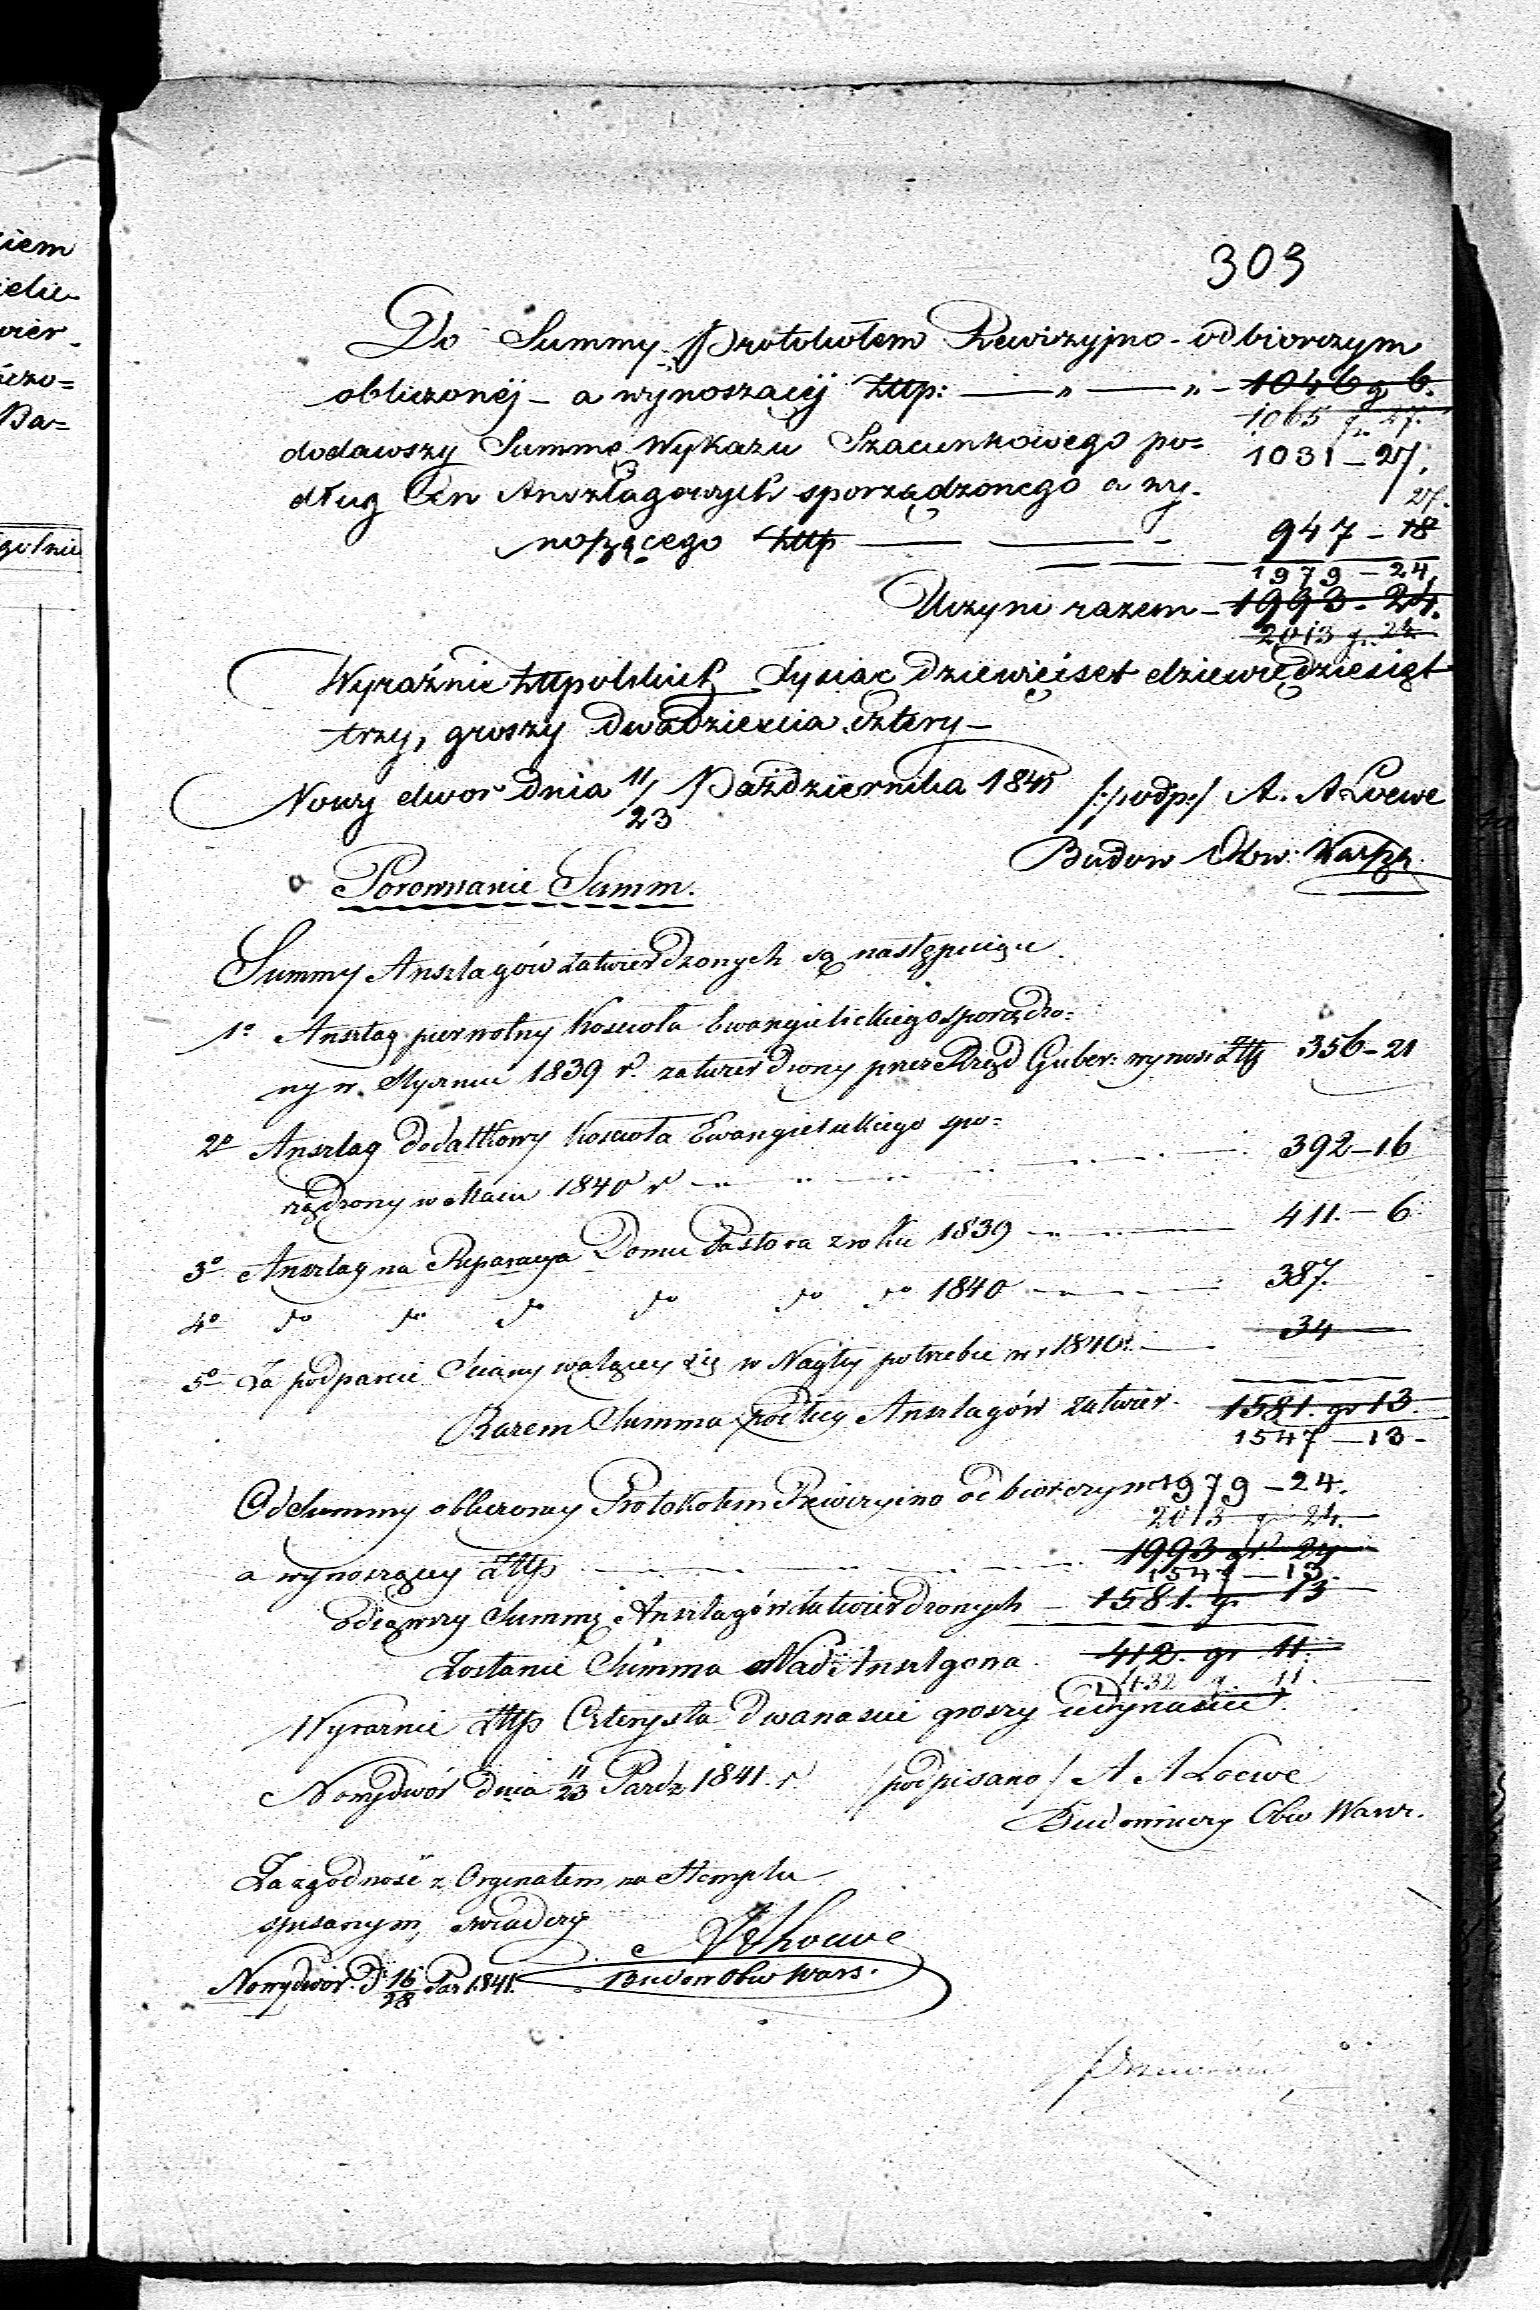 303
Do Summy Protokołem Rewizyjno-odbiorczym
obliczonéj - a wynoszącéj złtp: — „ — „ - 1046 g 6.
1065 g. 27.
dodawszy Summę Wykazu Szacunkowego po= 1031 - 27.
dług Cen Anszlagowych sporządzonego a wy-
27.
noszącego złtp — — - 947 - 18
1979 - 24.
Uczyni razem - 1993 - 24.
2013 g. 24
Wyraźnie złtpolskich Tysiac dziewięćset dziewiędziesiąt
trzy, groszy dwadzieścia cztery -
Nowy dwor dnia 11/23 Października 1841 /:podp:/ A. A Loewe
Budow Obw: Warsz.
Porownanie Summ.
Summy Anszlagów zatwierdzonych są następuiące
1o Anszlag pierwotny Kościoła Ewangielickiego sporządzo=
ny w Styczniu 1839 r. zatwierdzony przez Rząd Guber: wynosi Złtp 356 - 21
2o Anszlag dodatkowy Kościoła Ewangielickiego spo=
rządzony w Maiu 1840 r 392 - 16
3o Anszlag na Reparacya Domu Pastora z roku 1839 411. - 6
4o do do do do do do 1840 387.
5o Za podparcie Sciany walącey się w Nagłéj potrzebie w r 1840. 34
Razem Summa podług Anszlagów zatwier. 1581. gr 13.
1547 - 13 -
Od Summy obliczoney Protokołem Rewizyino odbiorczym 1979 - 24.
2013 gr 24.
a wynoszącey Złtp 1993 gr. 24
1547 - 13.
odiąwszy Summę Anszlagów zatwierdzonych - 1581. g. 13
Zostanie Summa Nad Anszlgowa 412. gr 11.
432 g. 11.
Wyraznie Złtp Czterysta dwanascie groszy iedynascie.
Nowydwór dnia 11/23 Pazdz 1841. r /podpisano/ A A Loewe
Budowniczy Obw Warsz.
Za zgodność z Orginałem na Stemplu
spisanym, swiadczy
A A Loewe
Nowydwór. D. 16/28 Paz 1841. Budow Obw Wars.